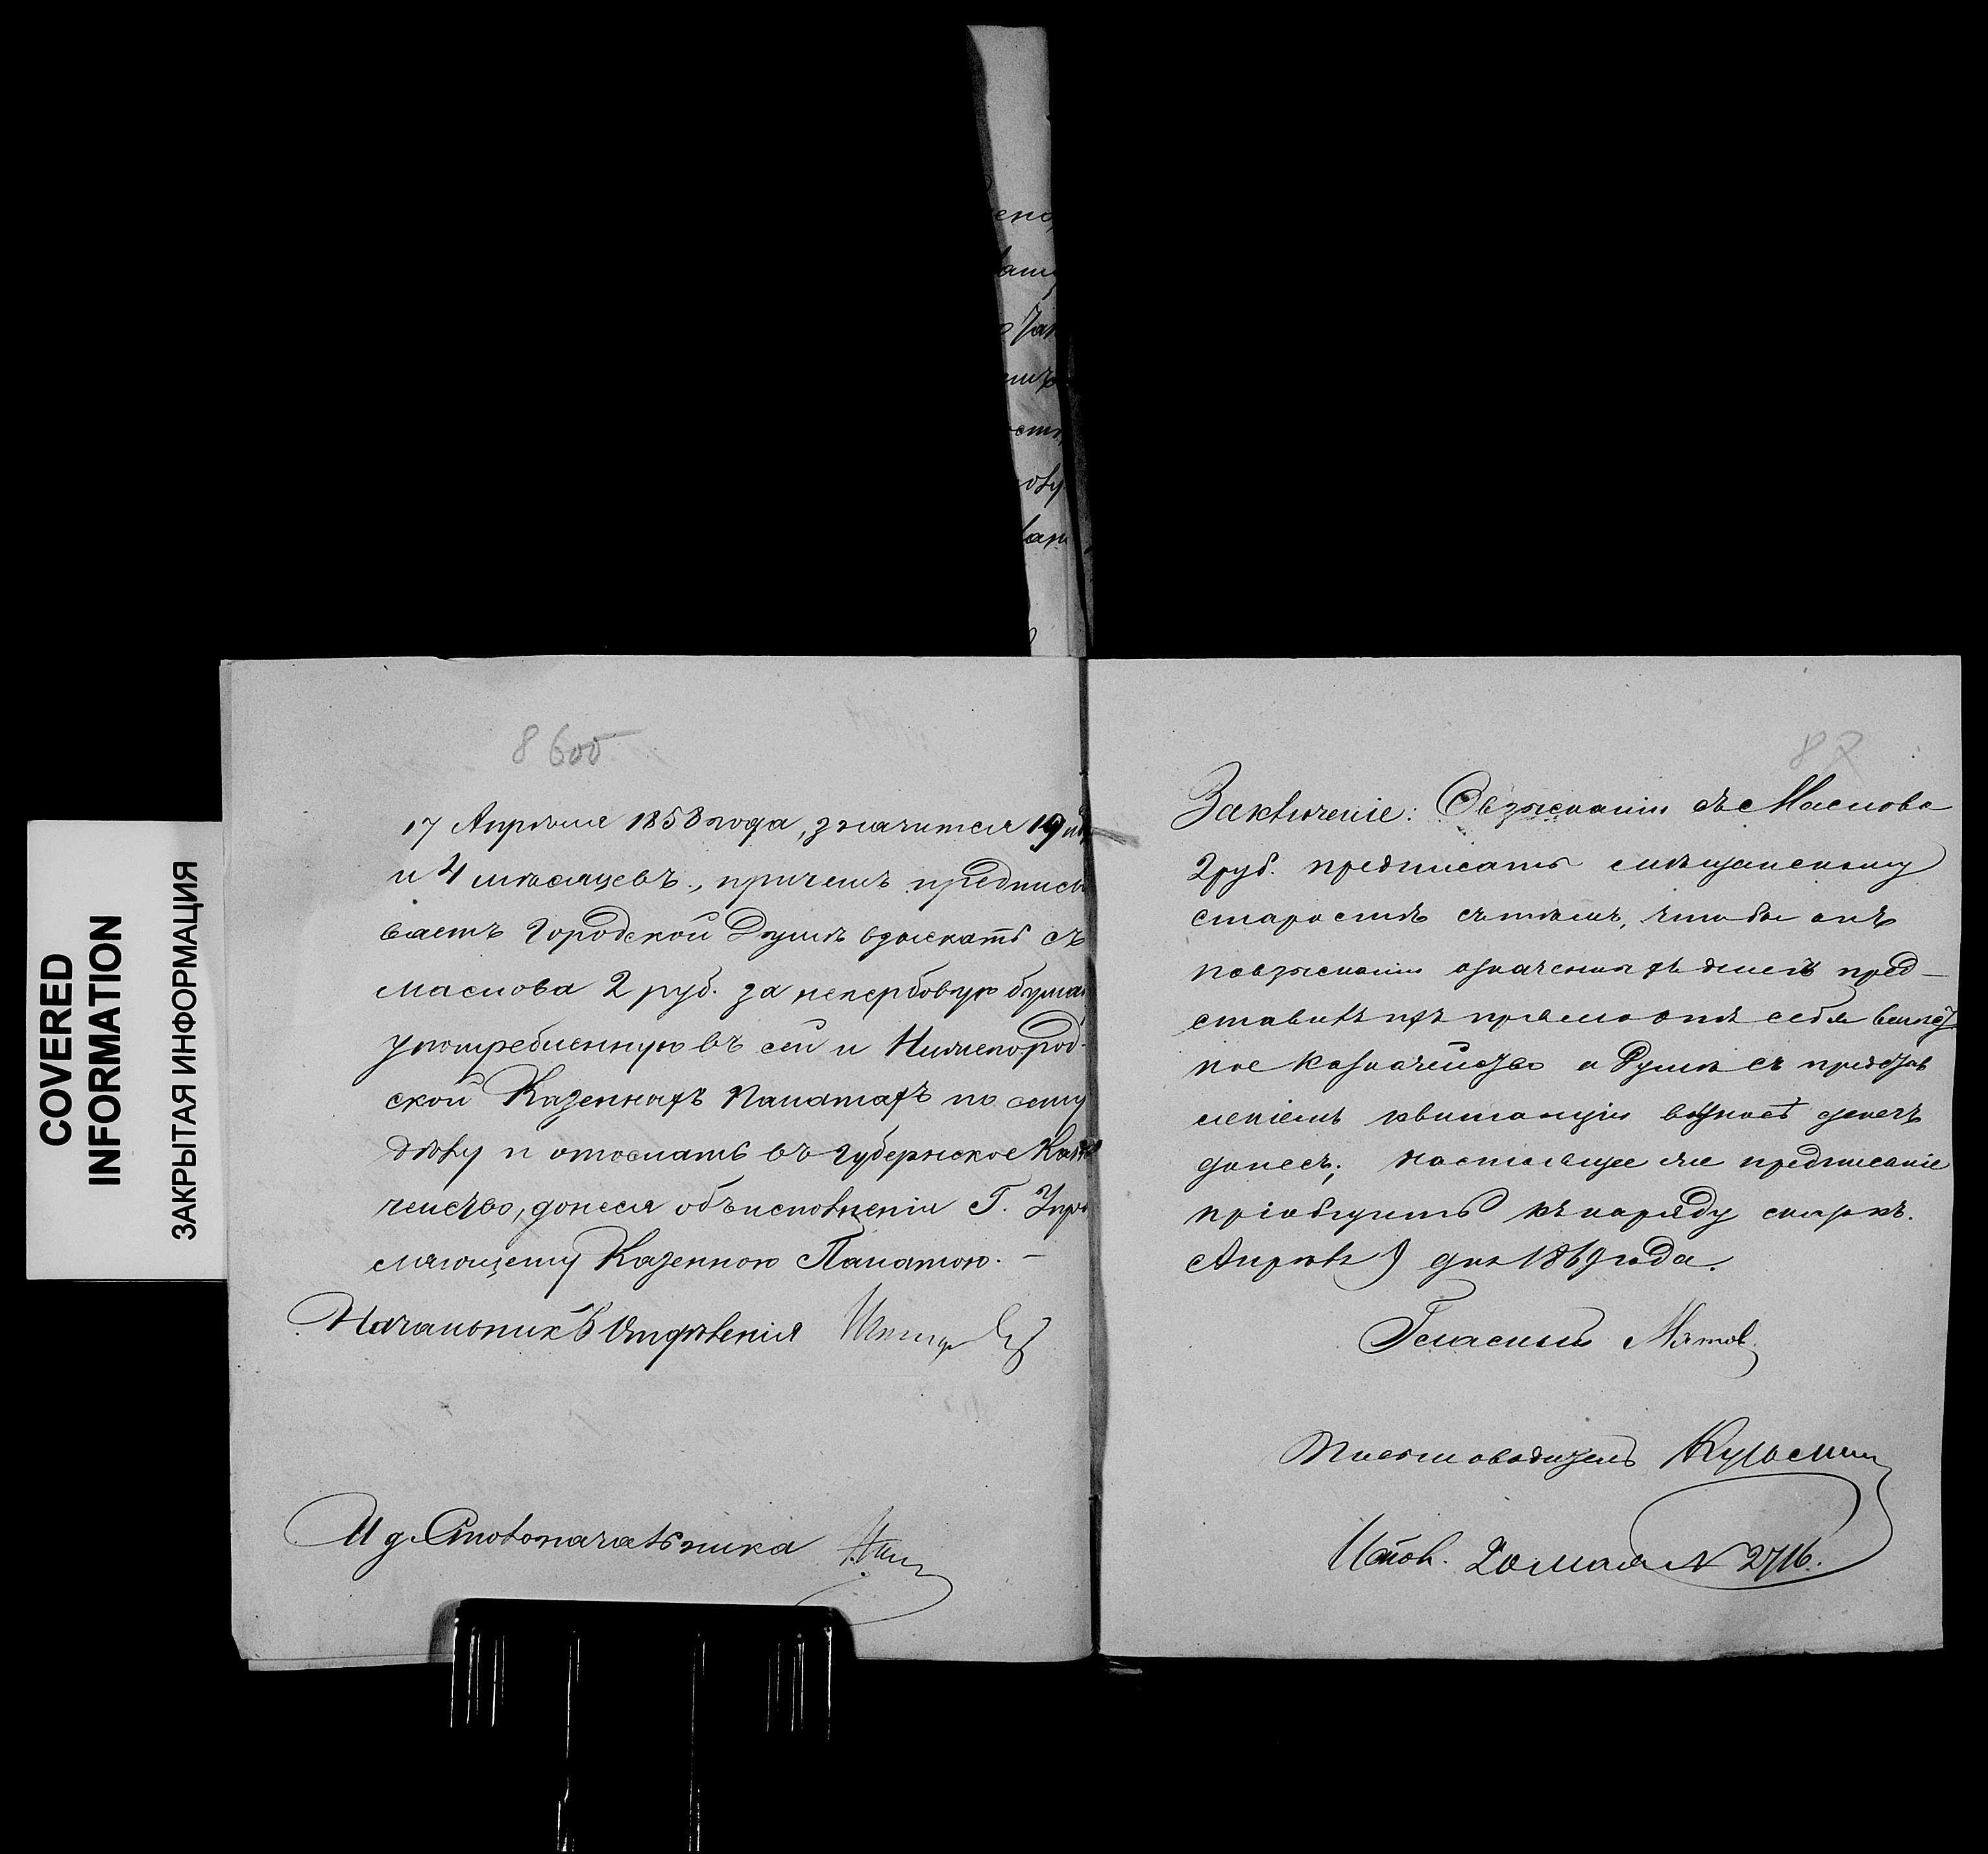 COVERED
INFORMATION
ЗАКРЫТАЯ ИНФОРМАЦИЯ
17 Апрѣля 1858 года, значится 19
и 4 мѣсяцевъ, причемъ предписы
ваетъ Городской Думѣ взыскать съ
Маслова 2 руб. за негербовую бума
употребленную въ сей и Нижегород-
ской Казенныхъ Палатахъ по сему
дѣлу и отослать въ Губернское Казна
чейство, донеся объ исполненіи Г. Упра
вляющему Казенною Палатою. –
Начальникъ Отдѣленія
И д. Столоначальника
87
Заключеніе: О взысканіи съ Маслова
2 руб. предписать мѣщанскому
старостѣ съ тѣмъ, чтобы онъ
по взысканіи означенныхъ денегъ пред–
ставилъ ихъ прямо отъ себя
ное Казначейство а Думѣ съ представ
леніемъ квитанціи взносѣ денегъ
донесъ; настоящее же предписаніе
пріобщить къ наряду
Апрѣля 9 дня 1869 года.
Гласный
Письмоводитель
Испол. 20 мая N 2716.